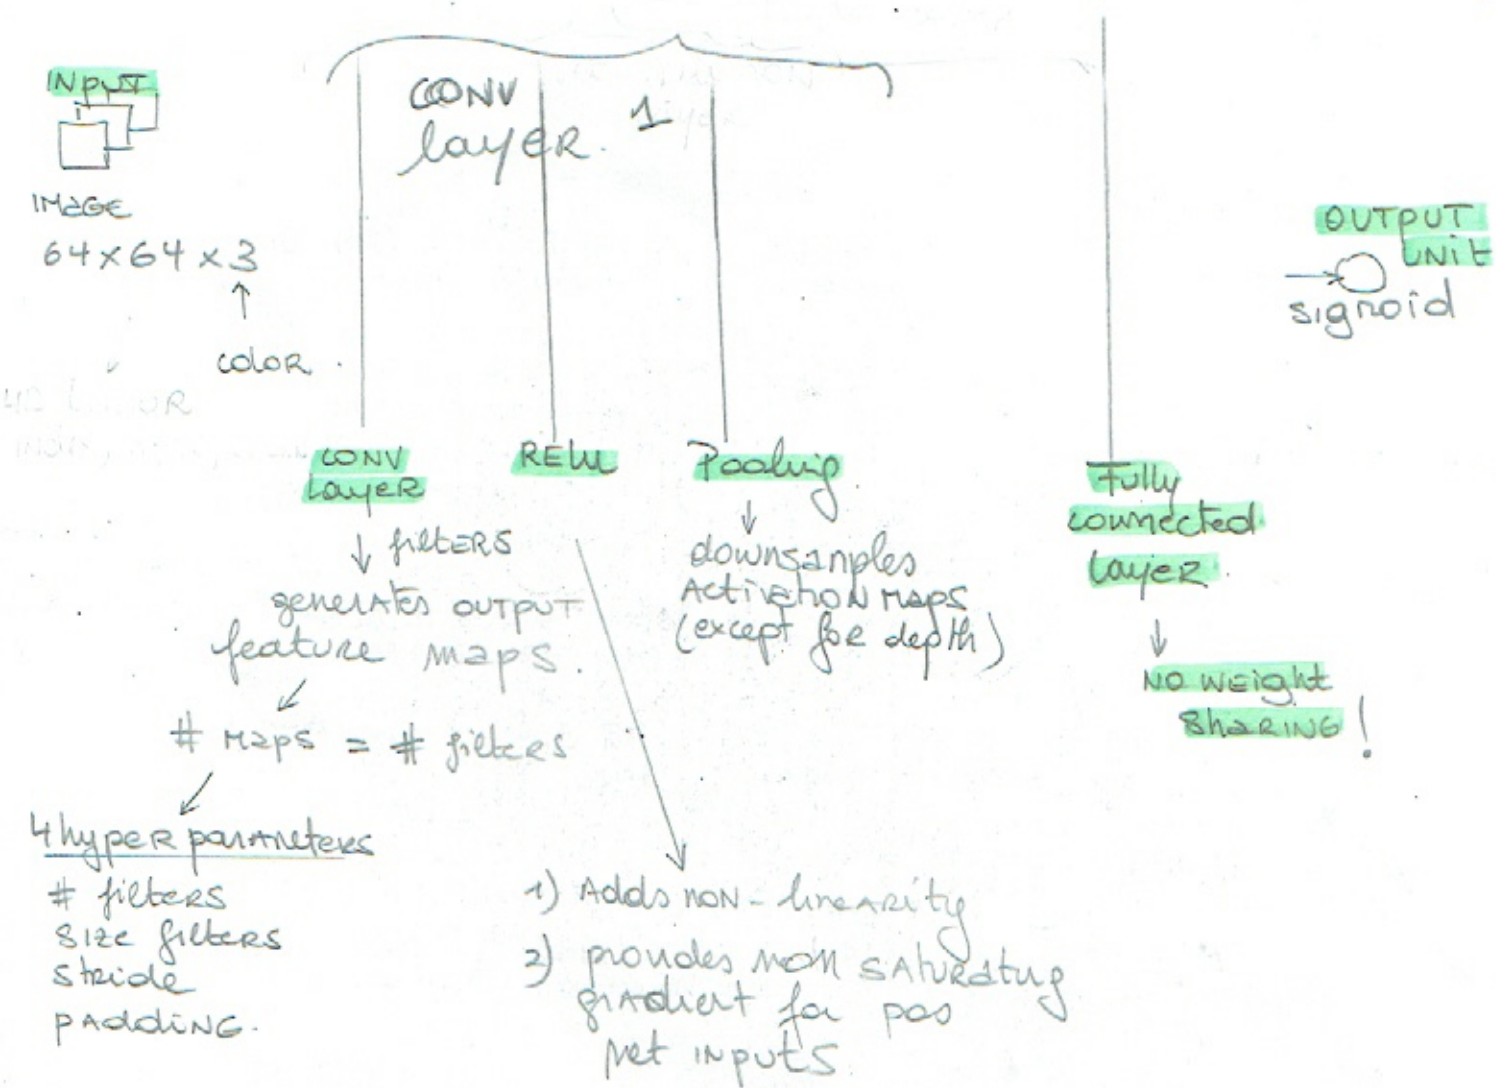 INPUT
IMAGE
64 x 64 x 3
↑
COLOR
CONV
layER 1
CONV
LayER
↓ filtERS
generates OUTPUT
feature maps.
# Maps = # filtERS
4 hyperparameters
# filtERS
Size filtERS
Stride
PADDING.
RELU
1) Adds non-linearity
2) provides non saturating
gradient for pos
net INPUTS
Pooling
↓
downsamples
ActivatioN Maps
(except for depth)
Fully
connected
layer
↓
NO WEIGHT
SHARING!
OUTPUT
UNIt
sigmoid